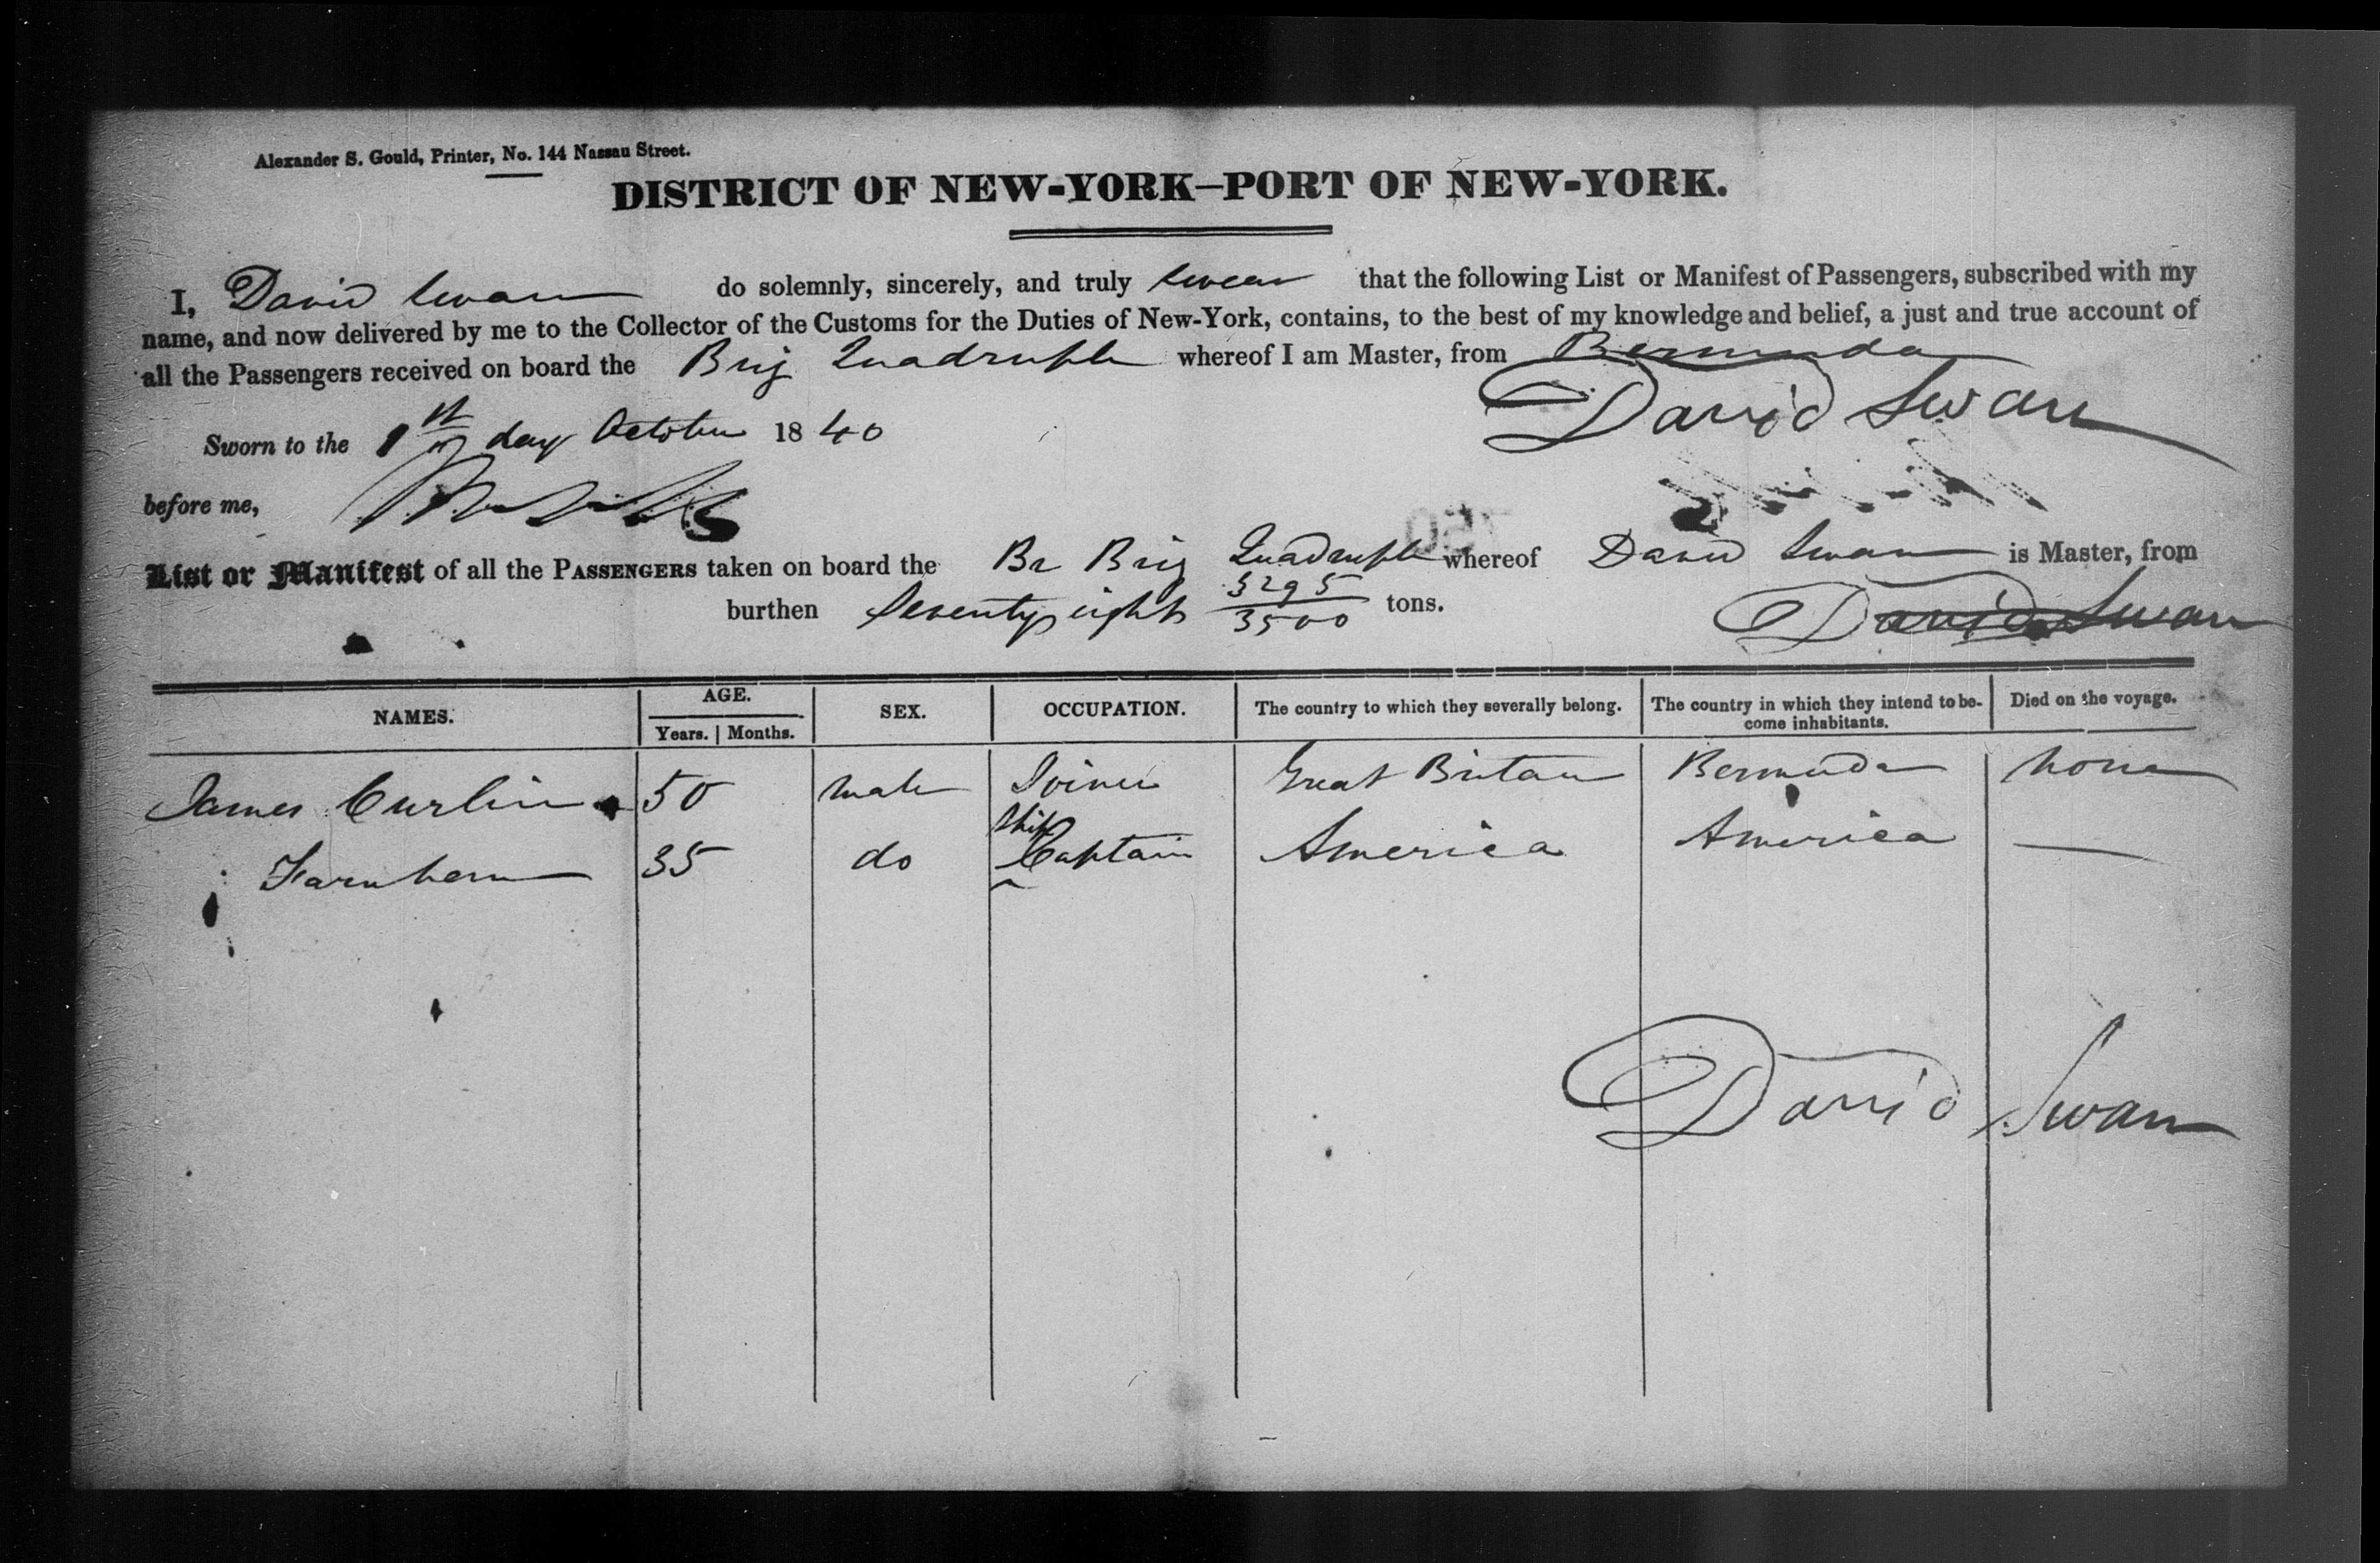 Alexander S. Gould, Printer, No. 144 Nassau Street.
DISTRICT OF NEW-YORK–PORT OF NEW-YORK.
I, David Swan do solemnly, sincerely, and truly swear that the following List or Manifest of Passengers, subscribed with my
name, and now delivered by me to the Collector of the Customs for the Duties of New-York, contains, to the best of my knowledge and belief, a just and true account of
all the Passengers received on board the Brig Quadruple whereof I am Master, from Bermuda
David Swan
Sworn to the 1st day October 1840
before me,
List or Manifest of all the PASSENGERS taken on board the Br Brig Quadruple whereof David Swan is Master, from
burthen Seventy eight 3295/3500 tons.
David Swan
NAMES. AGE. SEX. OCCUPATION. The country to which they severally belong. The country in which they intend to be- Died on the voyage.
Years. Months. come inhabitants.
James Curlin 50 male Joiner Great Britain Bermuda none
Farnham 35 do Ship Captain America America —
David Swan